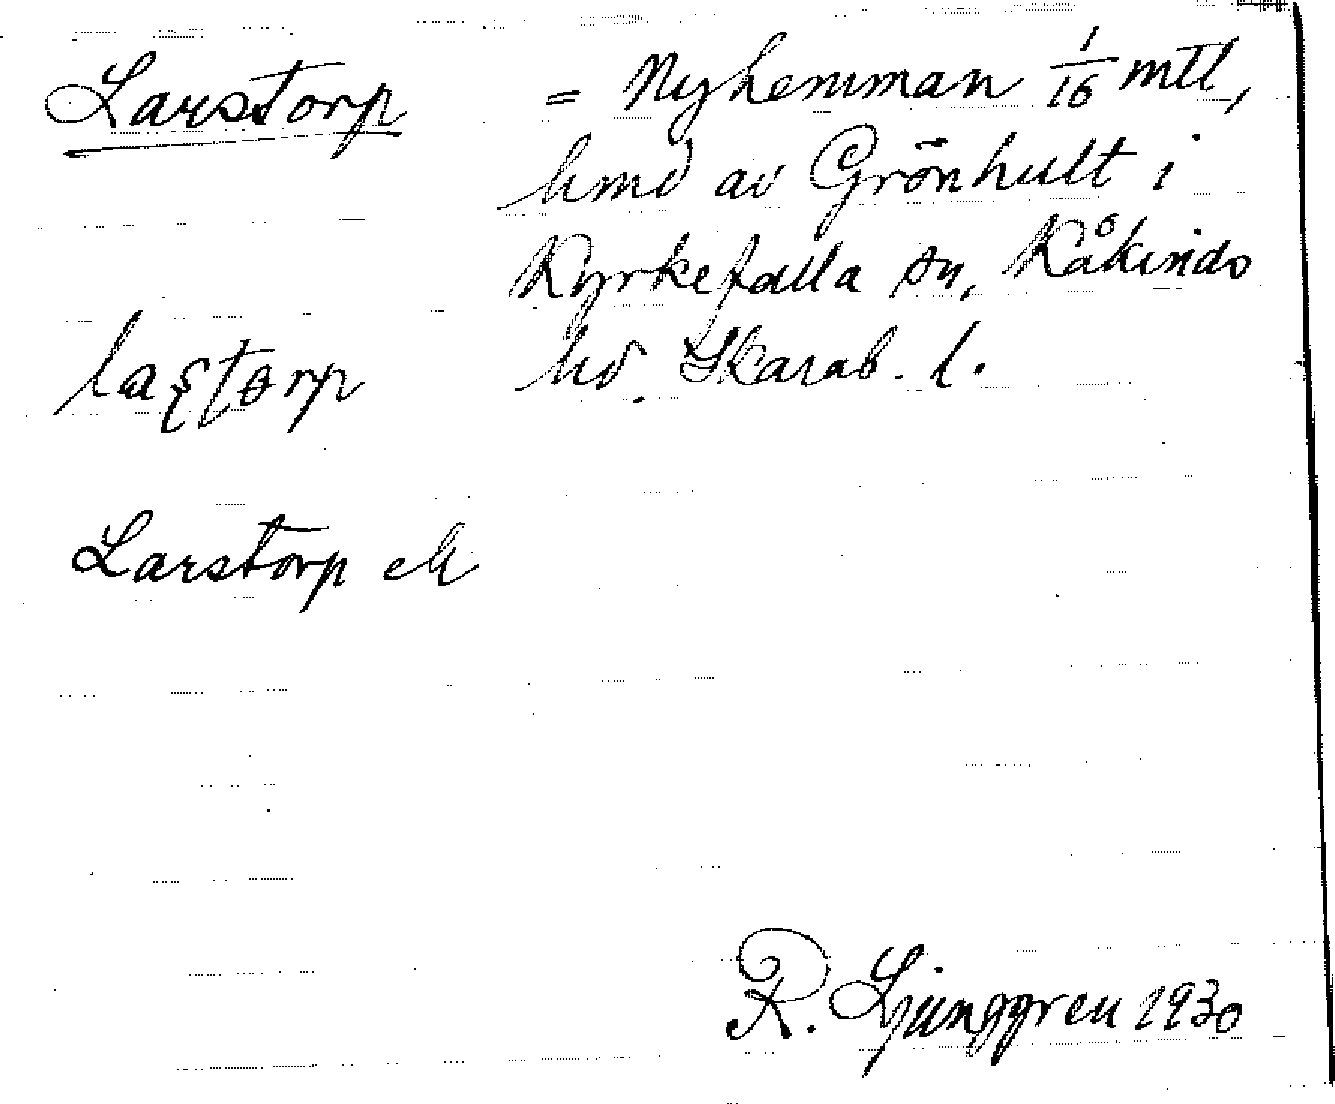 Larstorp = Nyhemman 1/16 mtl,
hmd av Grönhult i
Kyrkefalla sn, Kåkinds
hd. Skarab. l.
Larstorp ek
R. Ljunggren 1930